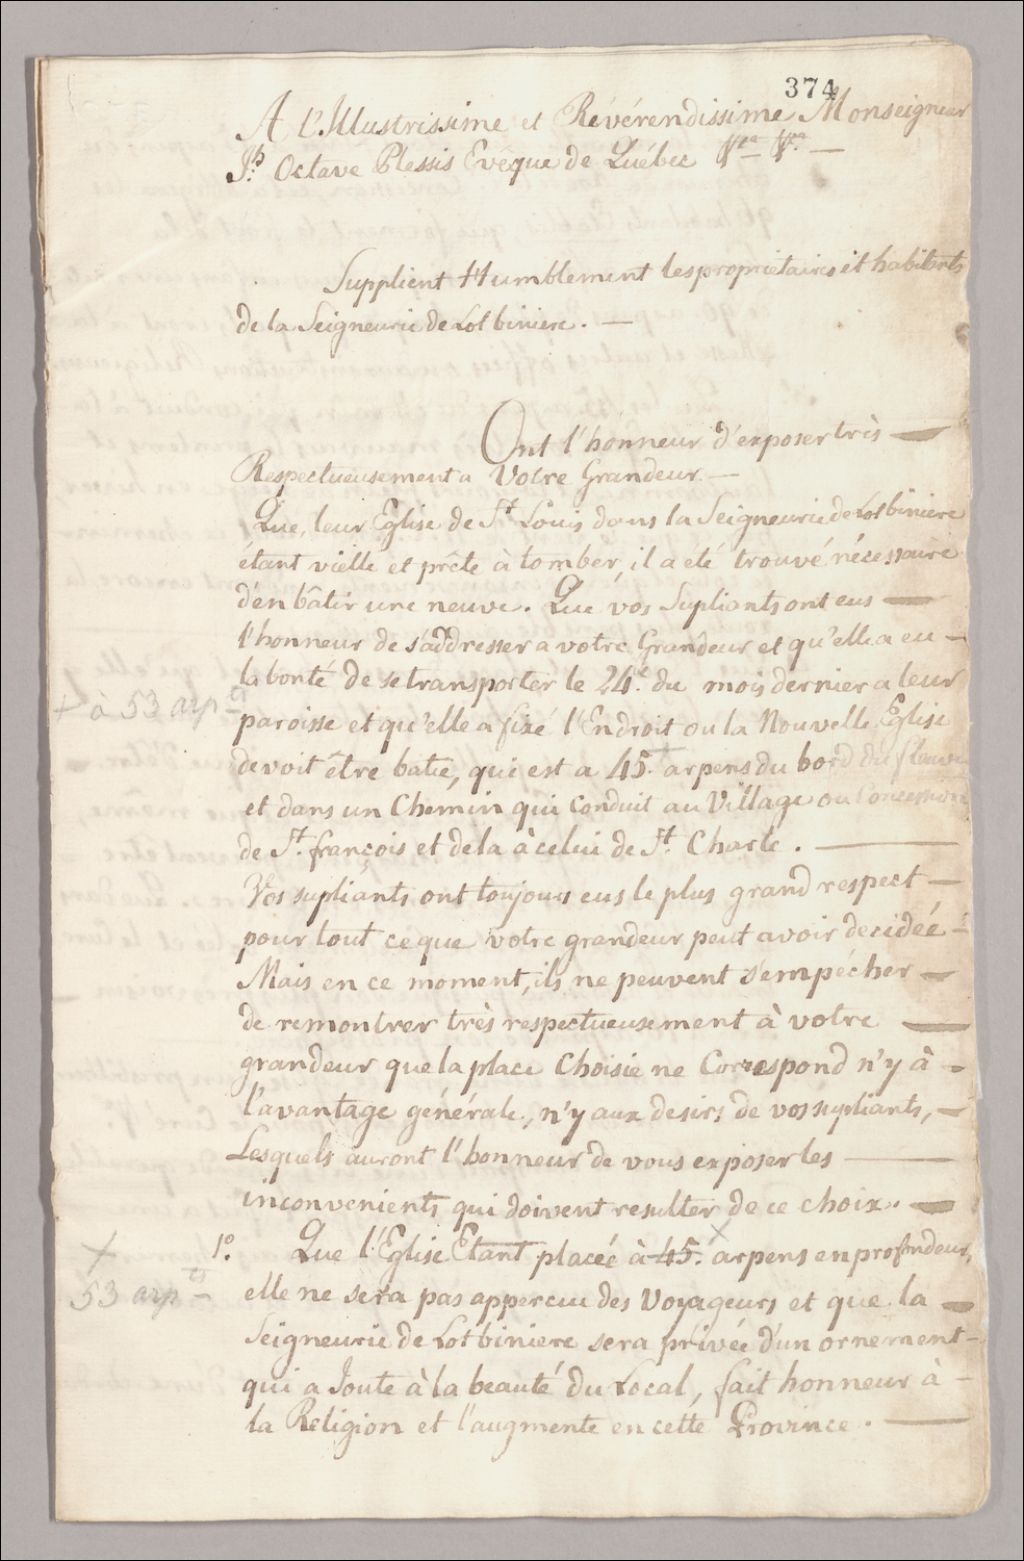 374
A l'Illustrissime et Révérendissime Monseigneur
Jh Octave Plessis Evêque de Québec &ca &ca —
Supplient Humblement les proprietaires et habitants
de la Seigneurie de Lotbiniere. —
Ont l'honneur d'exposer très —
Respectueusement a Votre Grandeur —
Que, leur Eglise de St Louis dans la Seigneurie de Lotbiniere
étant vièlle et prête à tomber, il a eté trouvé nécessaire
d'en bâtir une neuve. Que vos Supliants ont eus —
l'honneur de s'addresser a votre Grandeur et qu'elle a eu —
la bonté de se transporter le 24e. du mois dernier a leur
+ à 53 arpts
paroisse et qu'elle a fixé l'Endroit ou la Nouvelle Eglise
devoit être batie, qui est a 45. arpens du bord du fleuve
et dans un Chemin qui Conduit au Village ou Concession
de St. françois et de la à celui de St. Charle. —
Vos supliants ont toujours eus le plus grand respect —
pour tout ce que votre grandeur peut avoir decidéé —
Mais en ce moment, ils ne peuvent s'empécher —
de remontrer très respectueusement à votre —
grandeur que la place Choisie ne Correspond n'y à -
l'avantage générale, n'y aux desirs de vos supliants, —
Lesquels auront l'honneur de vous exposer les —
inconvenients qui doivent resulter de ce choix. —
+ 1o. Que l'Eglise Etant placéé à 45. x arpens en profondeur,
53 arpts elle ne sera pas appercue des Voyageurs et que la —
Seigneurie de Lotbiniere sera privée d'un ornement -
qui a Joute à la beauté du Local, fait honneur à -
la Religion et l'augmente en cette Province. —